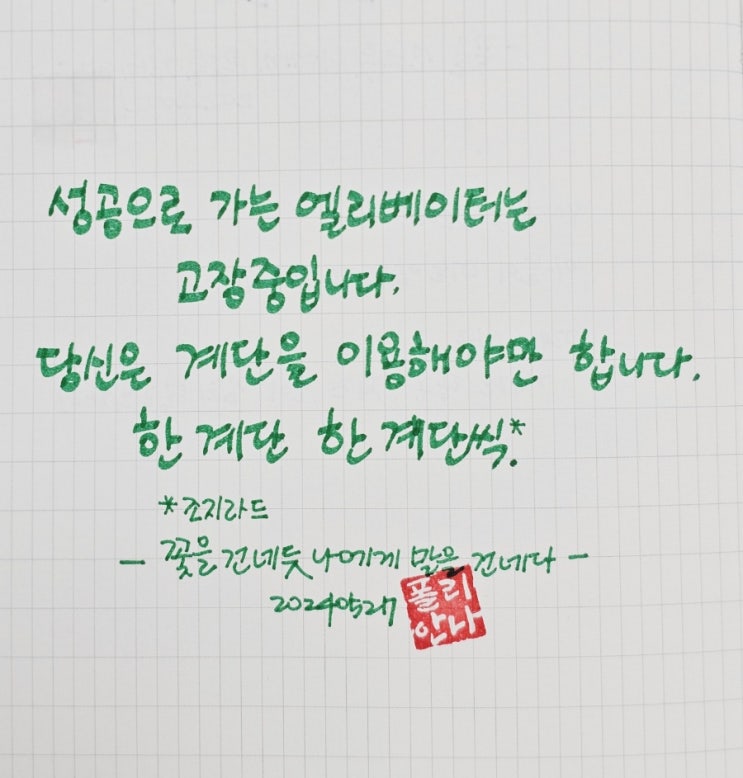 성공으로 가는 엘리베이터는
고장중입니다.
당신은 계단을 이용해야만 합니다.
한 계단 한 계단씩.*
*조지라드
- 꽃을 건네듯 나에게 말을 건네다 -
20240527
폴리
안나